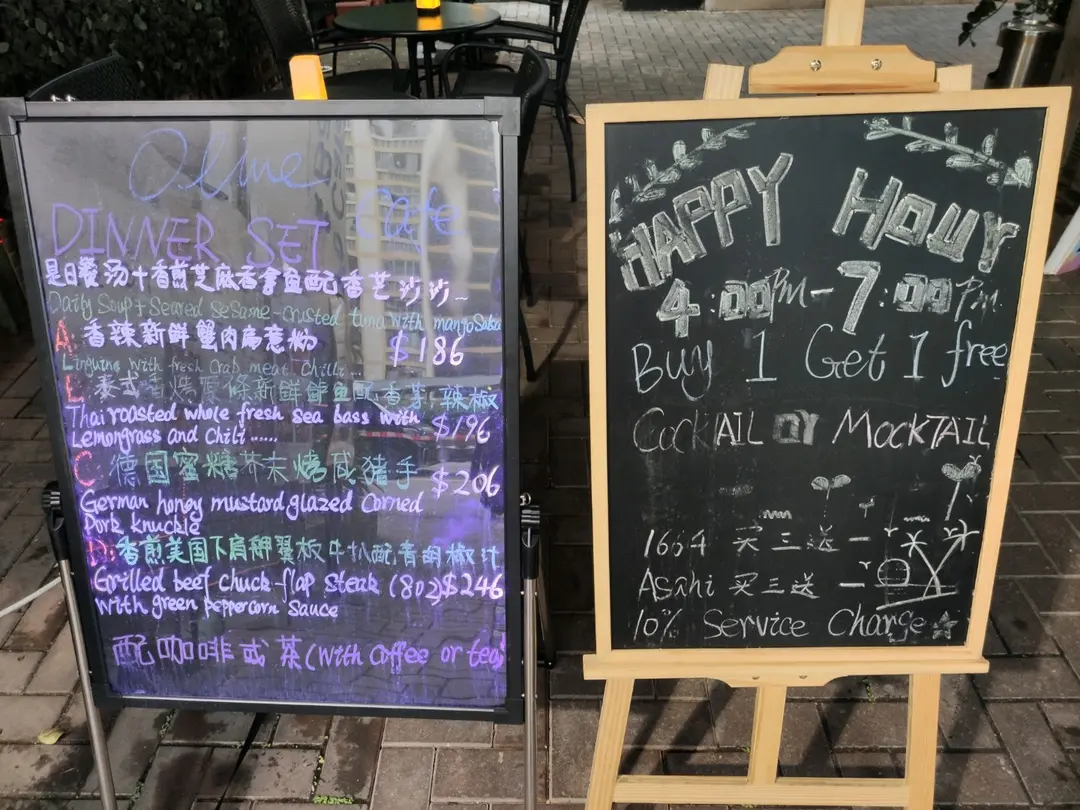 Olive
Cafe
DINNER SET
是日餐汤+香煎芝麻吞拿鱼配香芒沙沙~
Daily Soup + Seared Sesame-crusted tuna with mango Salsa
A. 香辣新鲜蟹肉扁意粉
$186
Linguine with fresh crab meat Chilli...
泰式香烤原條新鲜鲈鱼配香茅,辣椒
Thai roasted whole fresh sea bass with $196
Lemongrass and Chili ......
C 德国蜜糖芥末烤咸猪手
$206
German honey mustard glazed Corned
Pork knuckle
D. 香煎美国下肩胛翼板牛扒配青胡椒汁
Grilled beef chuck-flap Steak (8oz) $246
with green peppercorn sauce
配咖啡或茶(with coffee or tea)
HAPPY HOUR
4:00PM-7:00PM
Buy 1 Get 1 free
CockTAIL OR MockTAIL
1664 买三送一
Asahi 买三送一
10% Service Charge